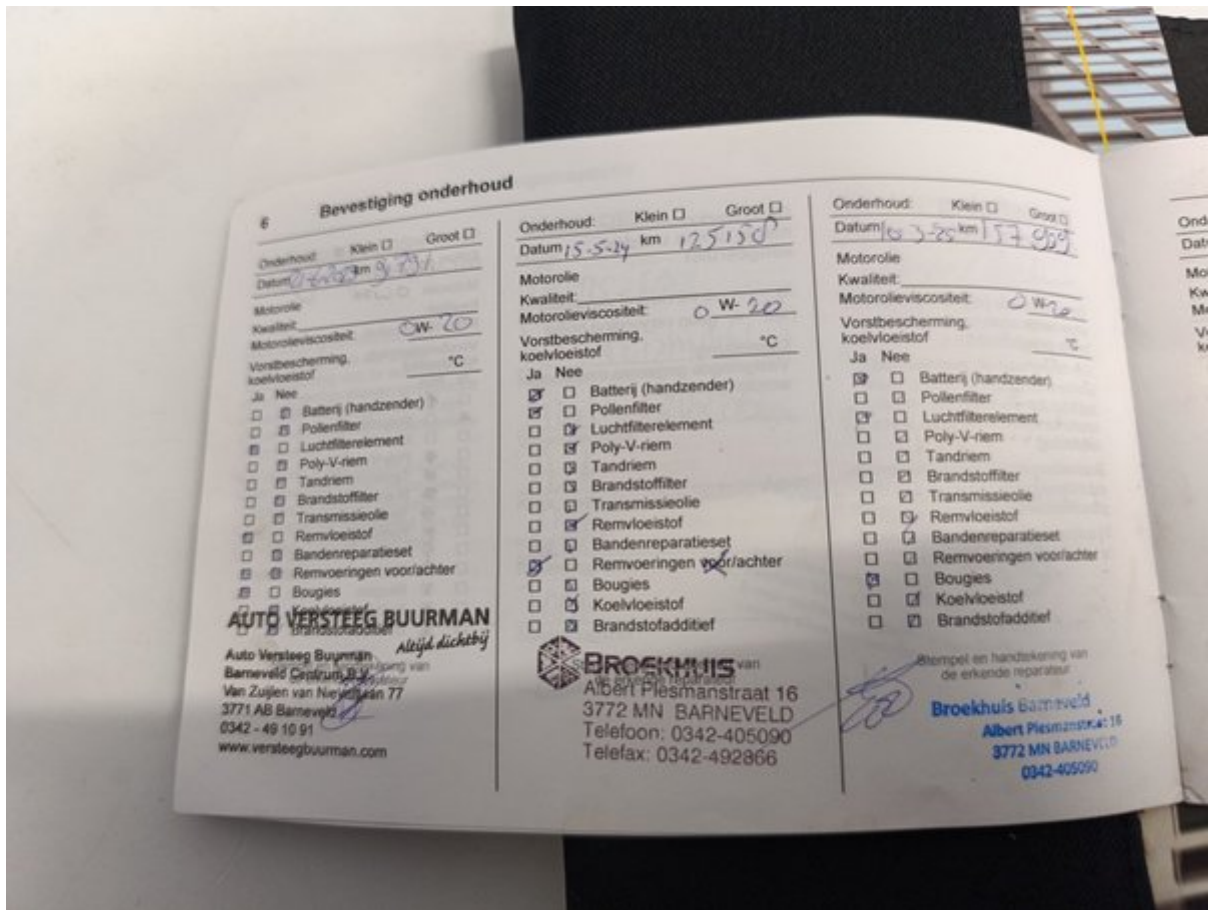 6 Bevestiging onderhoud
Onderhoud: Klein Groot
Datum km
Motorolie
Kwaliteit:
Motorolieviscositeit: 0W-20
Vorstbescherming,
koelvloeistof °C
Ja Nee
Batterij (handzender)
Pollenfilter
Luchtfilterelement
Poly-V-riem
Tandriem
Brandstoffilter
Transmissieolie
Remvloeistof
Bandenreparatieset
Remvoeringen voor/achter
Bougies
Koelvloeistof
Brandstofadditief
AUTO VERSTEEG BUURMAN
Altijd dichtbij
Auto Versteeg Buurman
Barneveld Centrum B.V.
Van Zuijlen van Nieveltlaan 77
3771 AB Barneveld
0342 - 49 10 91
www.versteegbuurman.com
Onderhoud: Klein Groot
Datum 15-5-24 km 125158
Motorolie
Kwaliteit:
Motorolieviscositeit: 0 W-20
Vorstbescherming,
koelvloeistof °C
Ja Nee
Batterij (handzender)
Pollenfilter
Luchtfilterelement
Poly-V-riem
Tandriem
Brandstoffilter
Transmissieolie
Remvloeistof
Bandenreparatieset
Remvoeringen voor/achter
Bougies
Koelvloeistof
Brandstofadditief
van
de erkende reparateur
BROEKHUIS
Albert Plesmanstraat 16
3772 MN BARNEVELD
Telefoon: 0342-405090
Telefax: 0342-492866
Onderhoud: Klein Groot
Datum km 157
Motorolie
Kwaliteit:
Motorolieviscositeit: 0 W-20
Vorstbescherming,
koelvloeistof °C
Ja Nee
Batterij (handzender)
Pollenfilter
Luchtfilterelement
Poly-V-riem
Tandriem
Brandstoffilter
Transmissieolie
Remvloeistof
Bandenreparatieset
Remvoeringen voor/achter
Bougies
Koelvloeistof
Brandstofadditief
Stempel en handtekening van
de erkende reparateur
Broekhuis Barneveld
Albert Plesmanstraat 16
3772 MN BARNEVELD
0342-405090